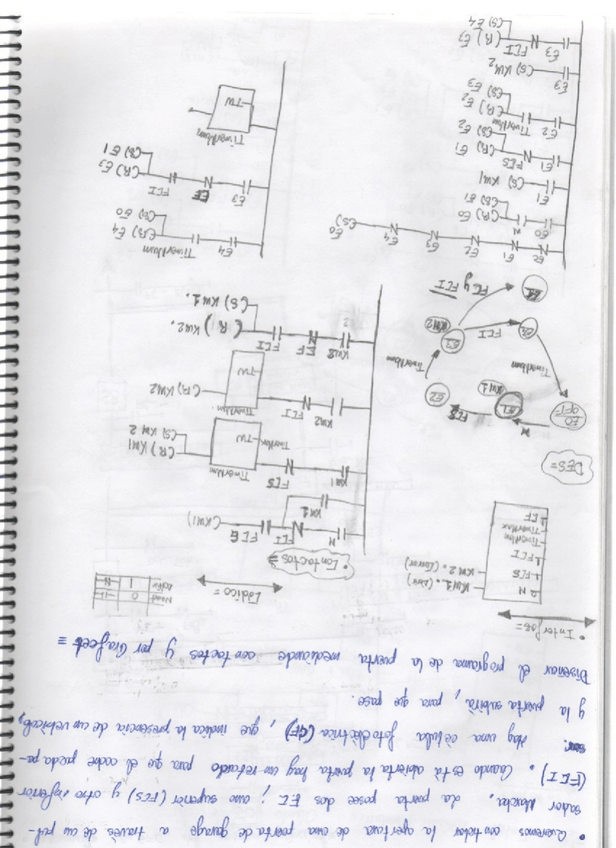 • Queremos controlar la apertura de una puerta de garage a través de un pul-
sador Marcha. La puerta posee dos FC; uno superior (FCS) y otro inferior
(FCI). Cuando está abierta la puerta hay un retardo para que el coche pueda pa-
sar. Hay una célula fotoeléctrica (CF), que indica la presencia de un vehículo,
y la puerta subirá, para que pase.
Diseñar el programa de la puerta mediante contactos y por Grafcet =
• Interfas =
0 M
1 FCS
1 FCI
TimerNum
TimerMax
1 EF
KM1. (Abrir)
KM2. (Cerrar)
Lógico =
Reposo 0
Activo 1 N
• Contactos =
M FCI FCS (KM1)
KM1
KM1 FCS TimerNum (R) KM1
TimerMax TW (S) KM2
KM2 FCI TimerNum (R) KM2
TW
KM2 EF FCI (R) KM2.
(S) KM1.
DES =
E0 M E1 KM1 FCS E2
TimerNum E3 KM2
FCI E4 TimerNum
FC y FCI E1
E4 E1 E2 E3 E4 (S) E0
E0 M (R) E0
(S) E1
E1 (S) KM1
E1 FCS (R) E1
(S) E2
E2 TimerNum (R) E2
(S) E3
E3 (S) KM2
E3 FCI (R) E3
(S) E4
E4 TimerNum (R) E4
(S) E0
E3 EF FCI (R) E3
(S) E1
TimerNum
TW